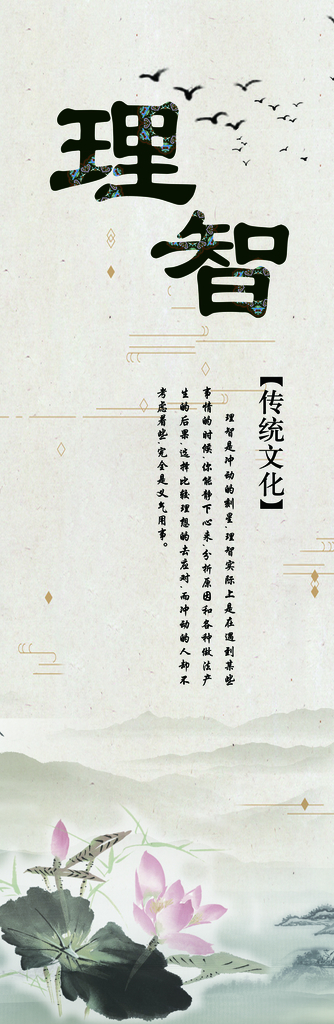 理智
【传统文化】
理智是冲动的刹星.理智实际上是在遇到某些
事情的时候.你能静下心来.分析原因和各种做法产
生的后果.选择比较理想的去应对.而冲动的人却不
考虑着些.完全是义气用事。